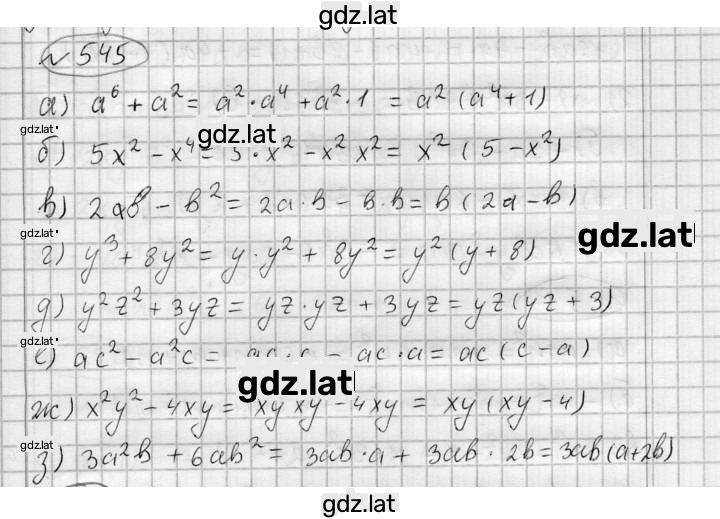 gdz.lat
№ 545
а) a⁶ + a² = a² · a⁴ + a² · 1 = a² (a⁴ + 1)
gdz.lat
gdz.lat
б) 5x² - x⁴ = 5 · x² - x² x² = x² (5 - x²)
в) 2ab - b² = 2a · b - b · b = b (2a - b)
gdz.lat
gdz.lat
г) y³ + 8y² = y · y² + 8y² = y² (y + 8)
д) y² z² + 3yz = yz · yz + 3yz = yz (yz + 3)
gdz.lat
е) ac² - a²c = ac · c - ac · a = ac (c - a)
gdz.lat
ж) x²y² - 4xy = xy xy - 4xy = xy (xy - 4)
gdz.lat
з) 3a²b + 6ab² = 3ab · a + 3ab · 2b = 3ab (a + 2b)
gdz.lat